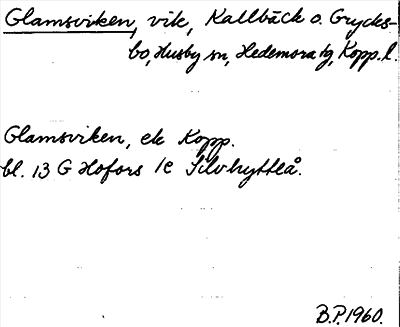 Glamsviken, vik, Kallbäck o. Grycks-
bo, Husby sn, Hedemora tg, Kopp. l.
Glamsviken, ek Kopp.
bl. 13 G Hofors 1e Silvhytteå.
B.P. 1960.